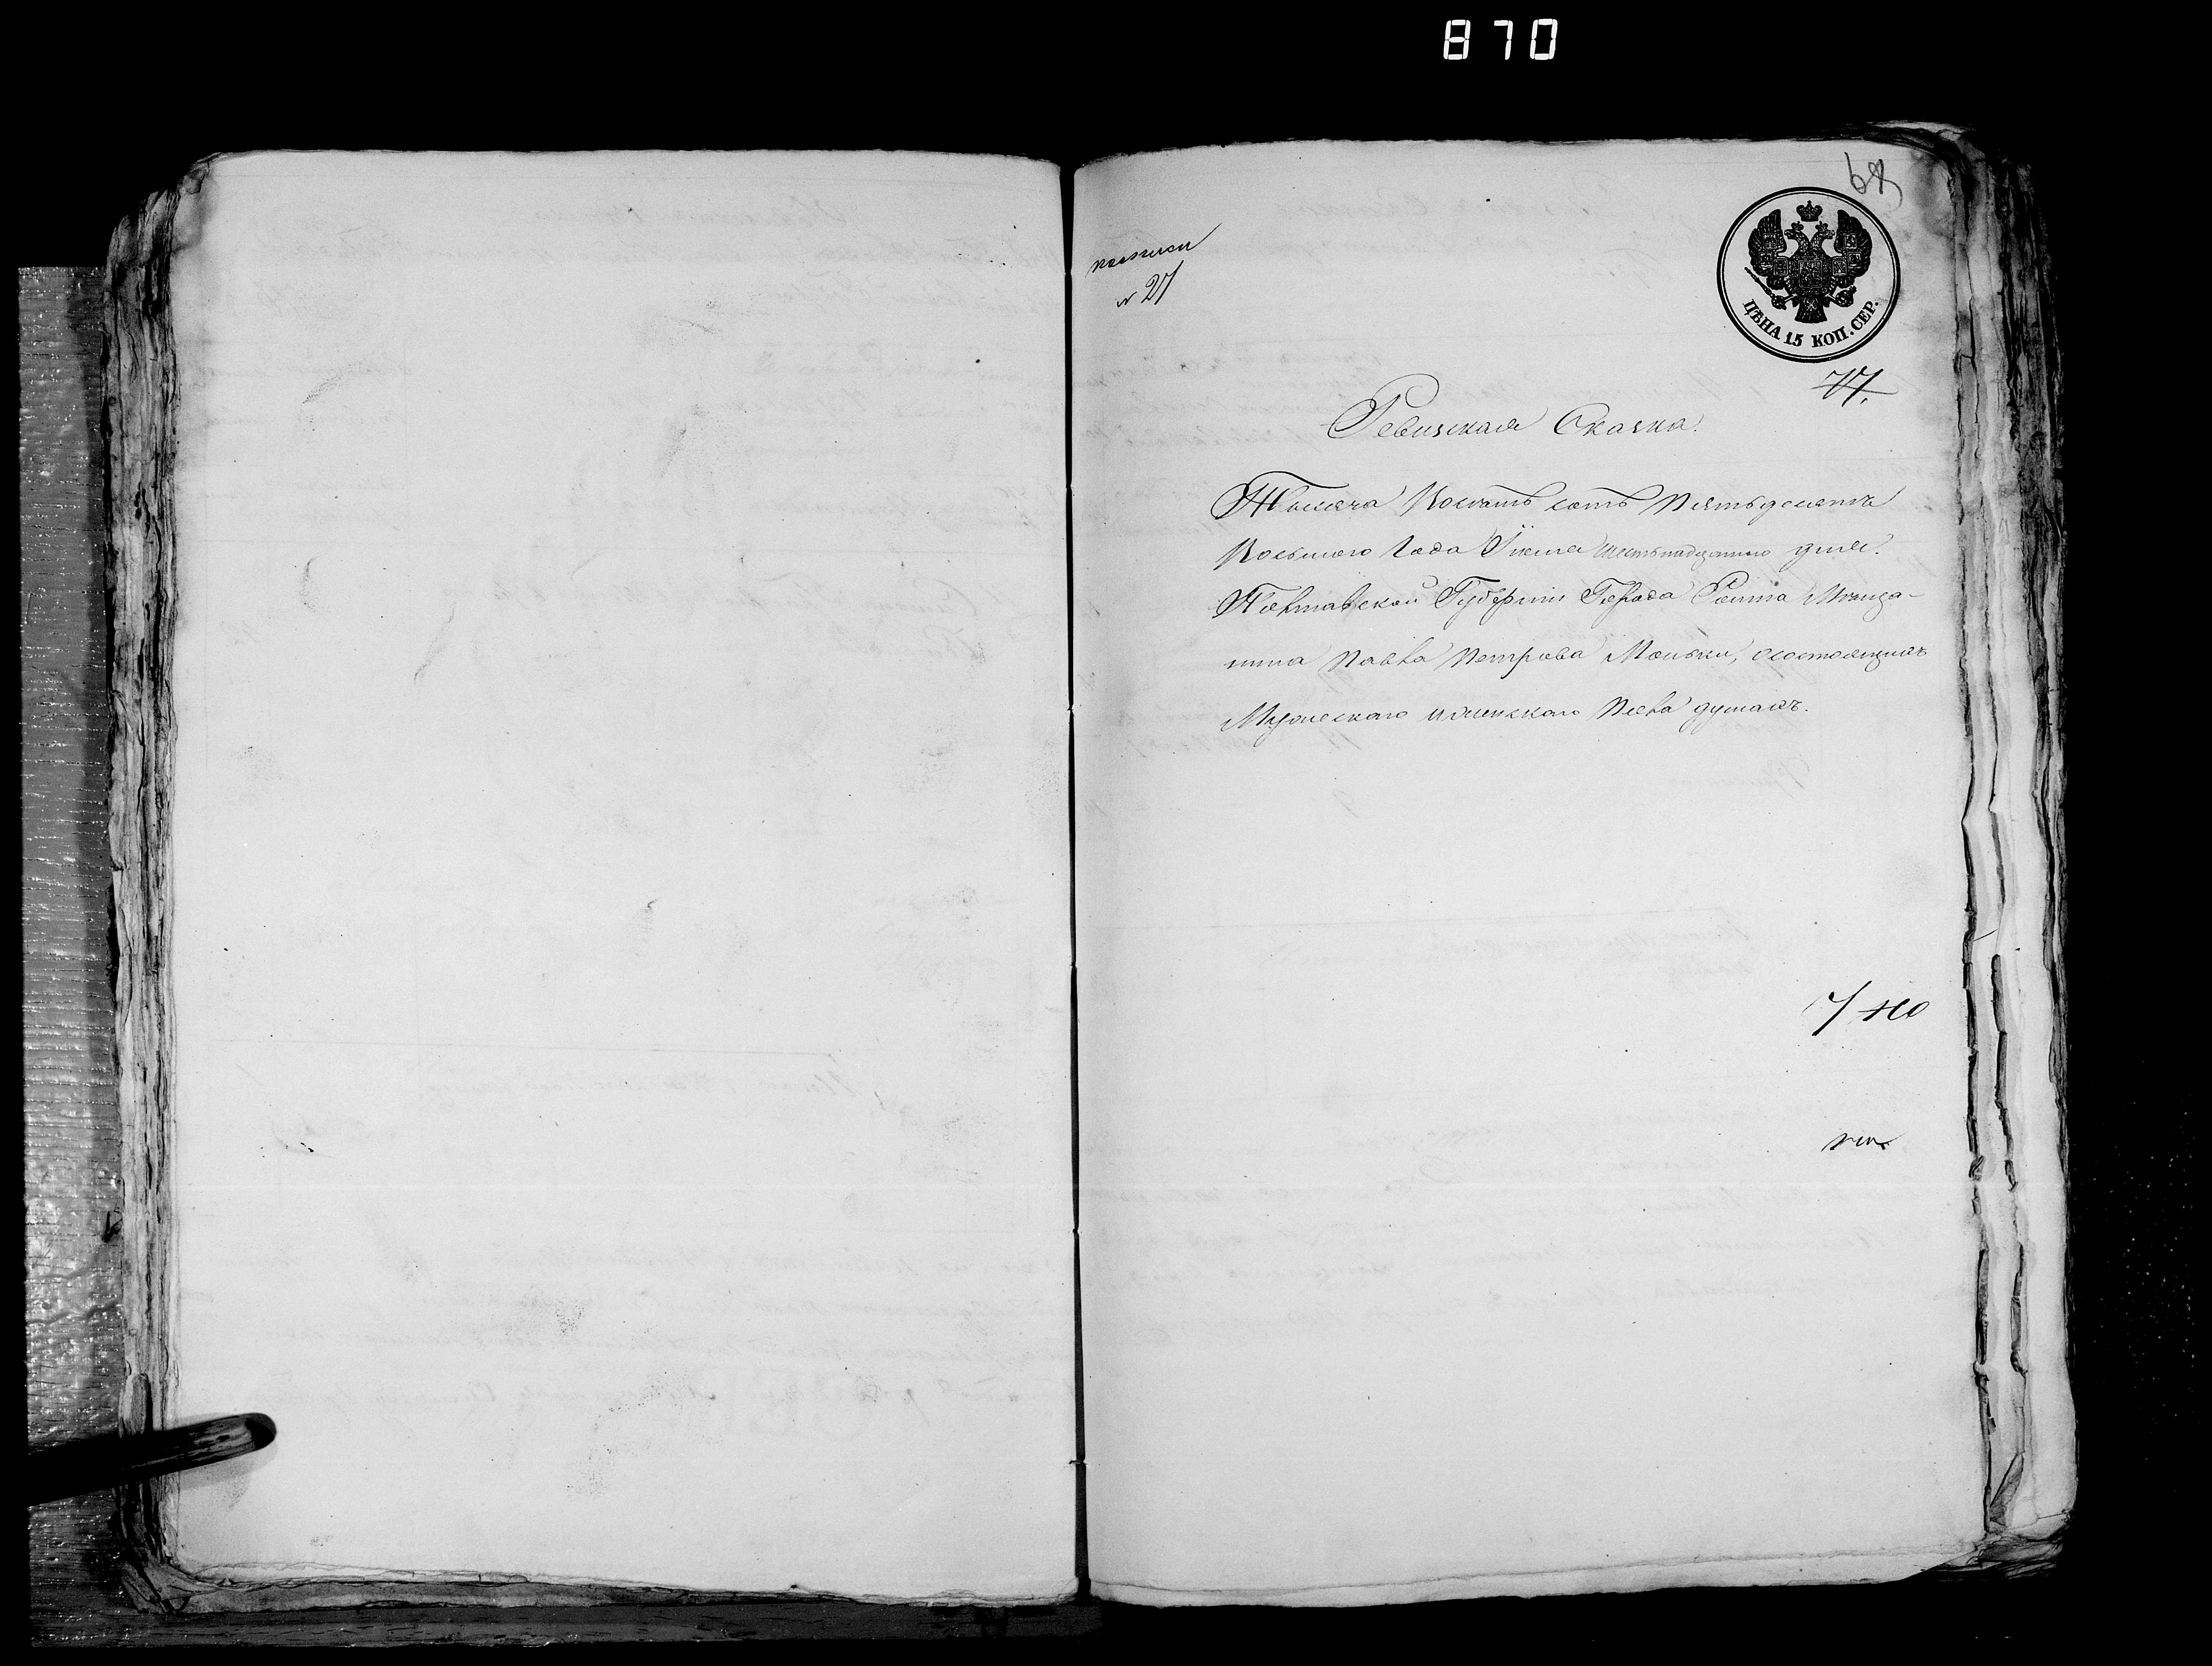 870
68
№ 27
ЦѢНА 15 КОП. СЕР.
77.
Ревизская Сказка.
Тысяча Восемь сотъ Пятьдесятъ
Восьмого Года Іюня шестьнадцатого дня.
Полтавской Губерніи Города Ромна Мѣща-
нина Павла Петрова, состоящимъ
Мужескаго и женскаго Пола душамъ.
7